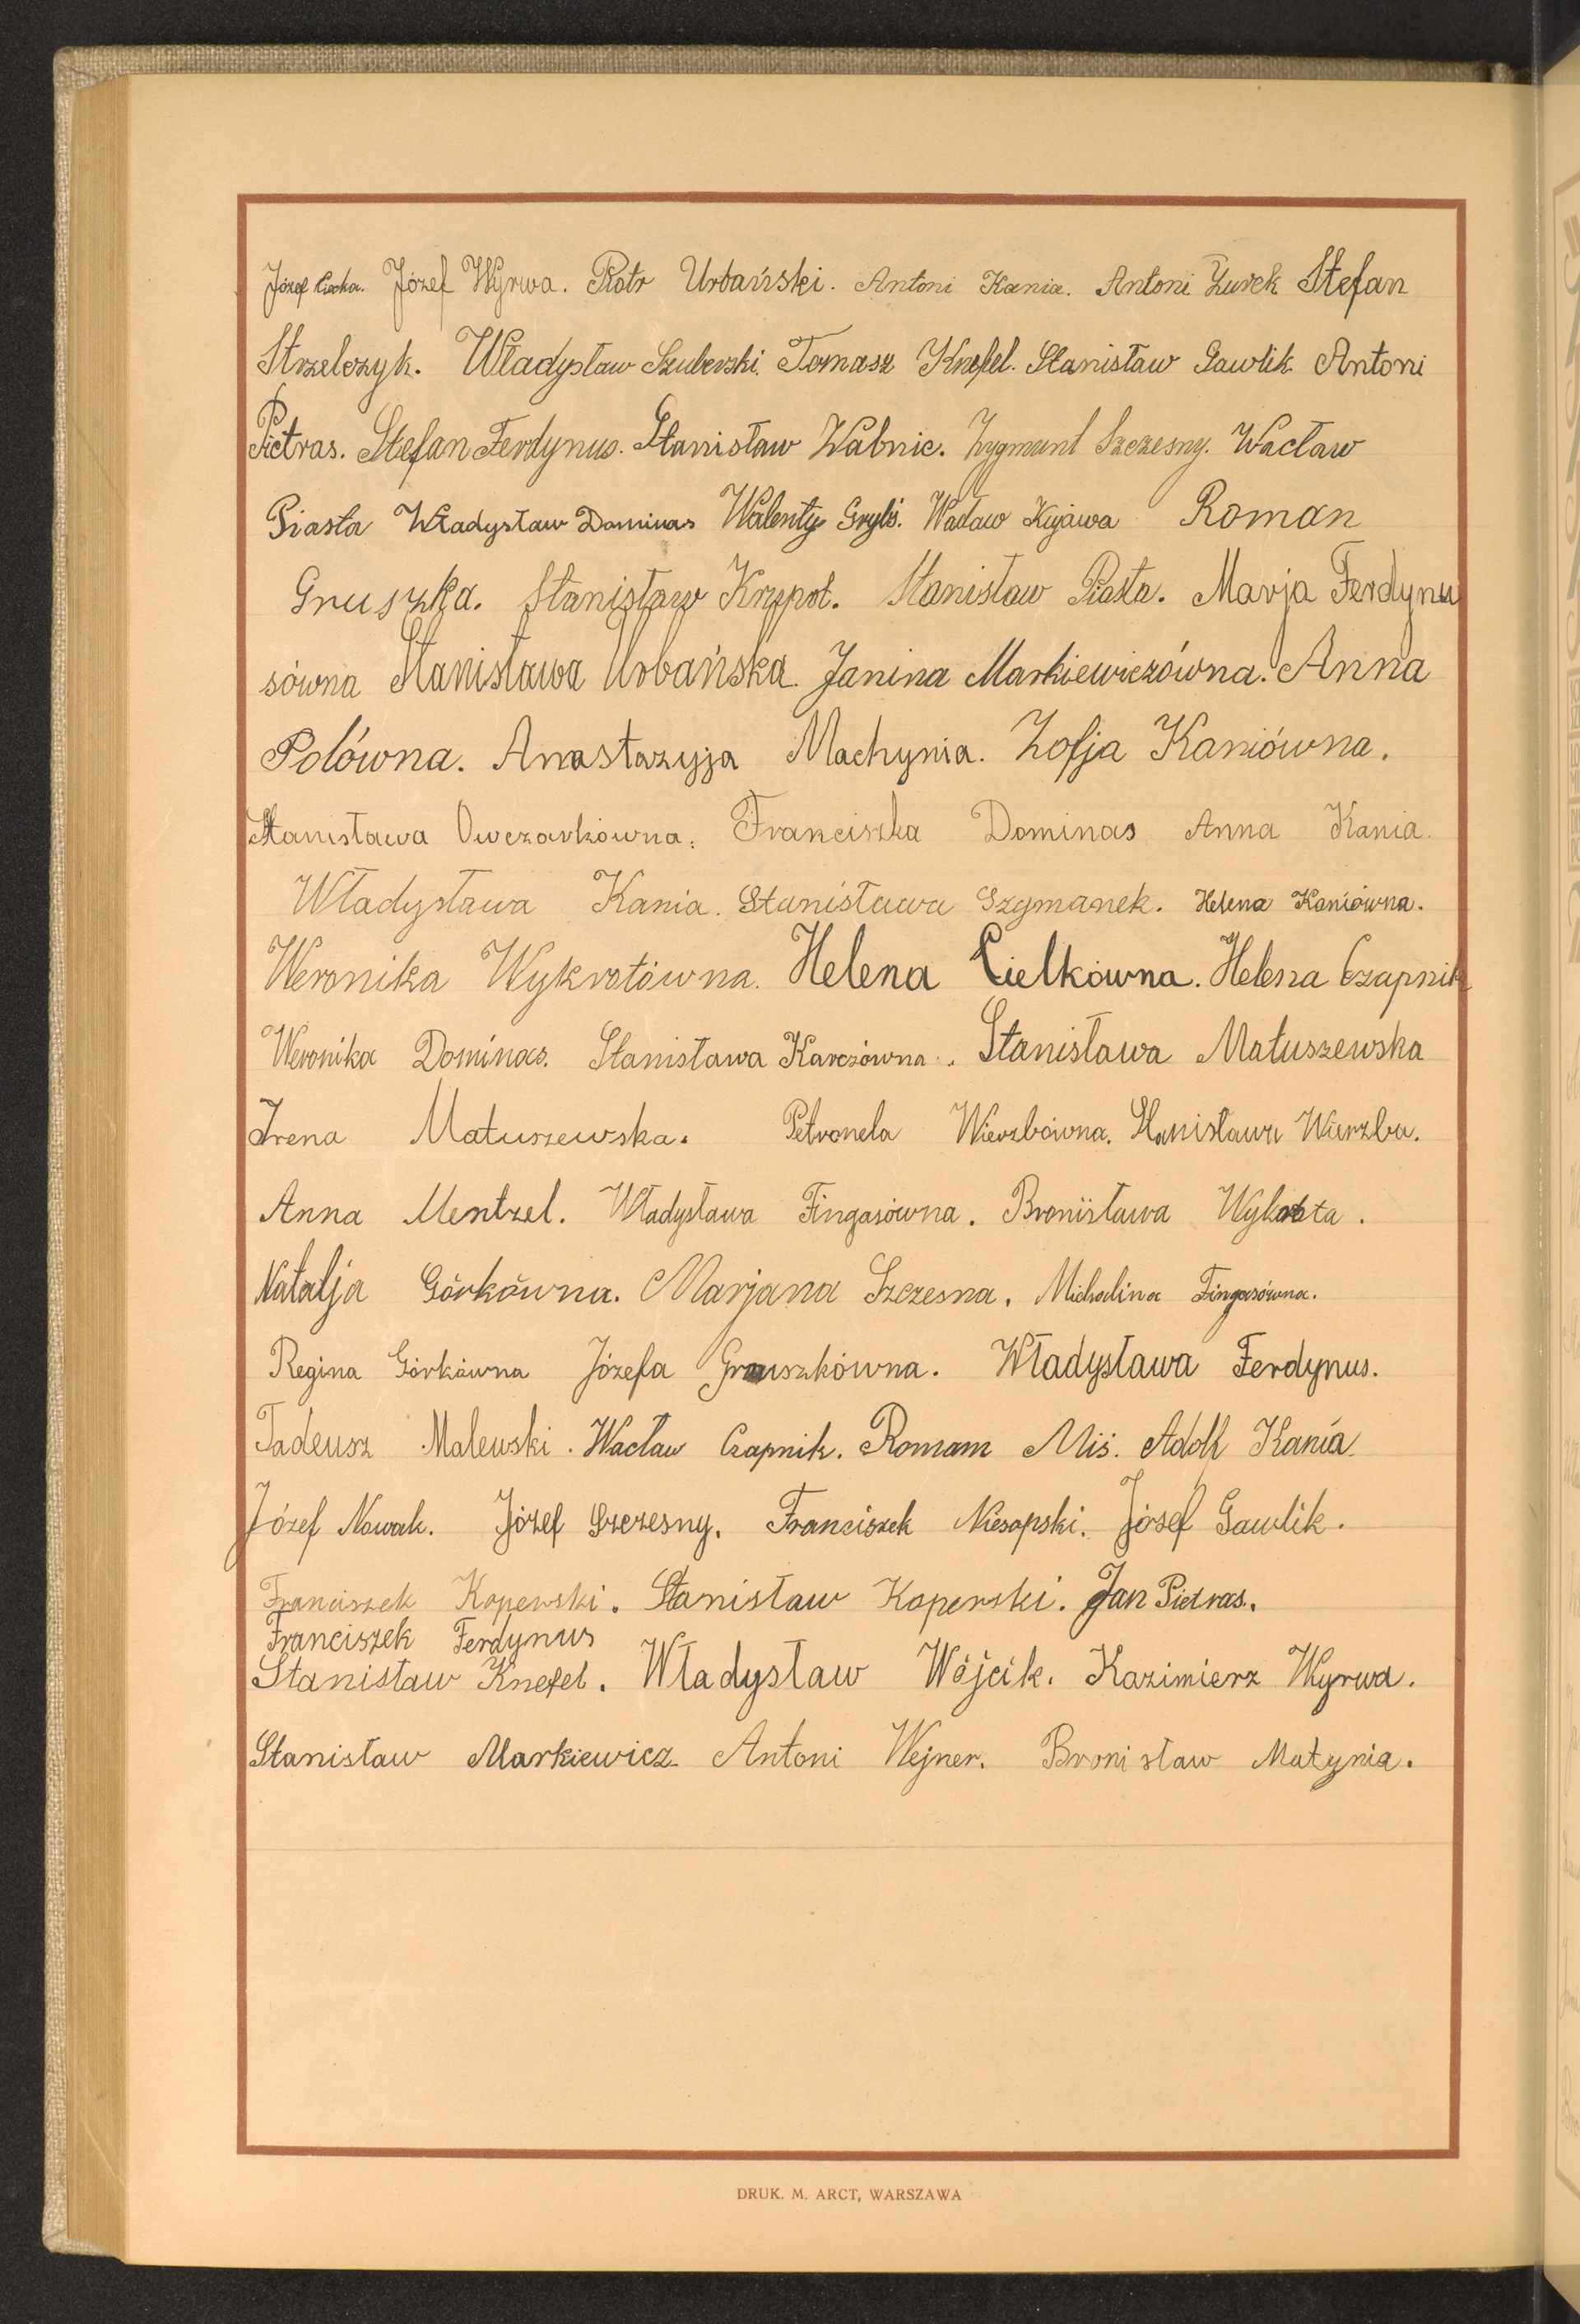 Józef Józef Wyrwa. Piotr Urbański. Antoni Kania. Antoni Żurek Stefan
Strzelczyk. Władysław Szuberski. Tomasz Knefel. Stanisław Gawlik. Antoni
Pietras. Stefan Ferdynus. Stanisław Walnic. Zygmunt Szczesny. Wacław
Piasta Władysław Dominas Walenty Gryis. Wacław Kujawa Roman
Gruszka. Stanisław Krzpot. Stanisław Piasta. Marja Ferdynu
sówna Stanisława Urbańska. Janina Markiewiczówna. Anna
Polówna. Anastazyja Machynia. Zofja Kaniówna.
Stanisława Owczarkówna. Franciszka Dominas Anna Kania.
Władysława Kania. Stanisława Szymanek. Helena Kaniówna.
Weronika Wykrotówna. Helena Cielkówna. Helena Czapnik
Weronika Dominas. Stanisława Karczówna. Stanisława Matuszewska
Irena Matuszewska. Petronela Wierzbówna. Stanisława Wierzba.
Anna Mentzel. Władysława Fingasówna. Bronisława Wykrota.
Natalja Górkówna. Marjana Szczesna. Michalina Fingasówna.
Regina Górkówna Józefa Gruszkówna. Władysława Ferdynus.
Tadeusz Malewski. Wacław Czapnik. Romam Miś. Adolf Kania.
Józef Nowak. Józef Szczesny. Franciszek Niesopski. Józef Gawlik.
Franciszek Koperski. Stanisław Koperski. Jan Pietras.
Franciszek Ferdynus
Stanisław Knefel. Władysław Wójcik. Kazimierz Wyrwa.
Stanisław Markiewicz. Antoni Wejner. Bronisław Matynia.
DRUK. M. ARCT, WARSZAWA